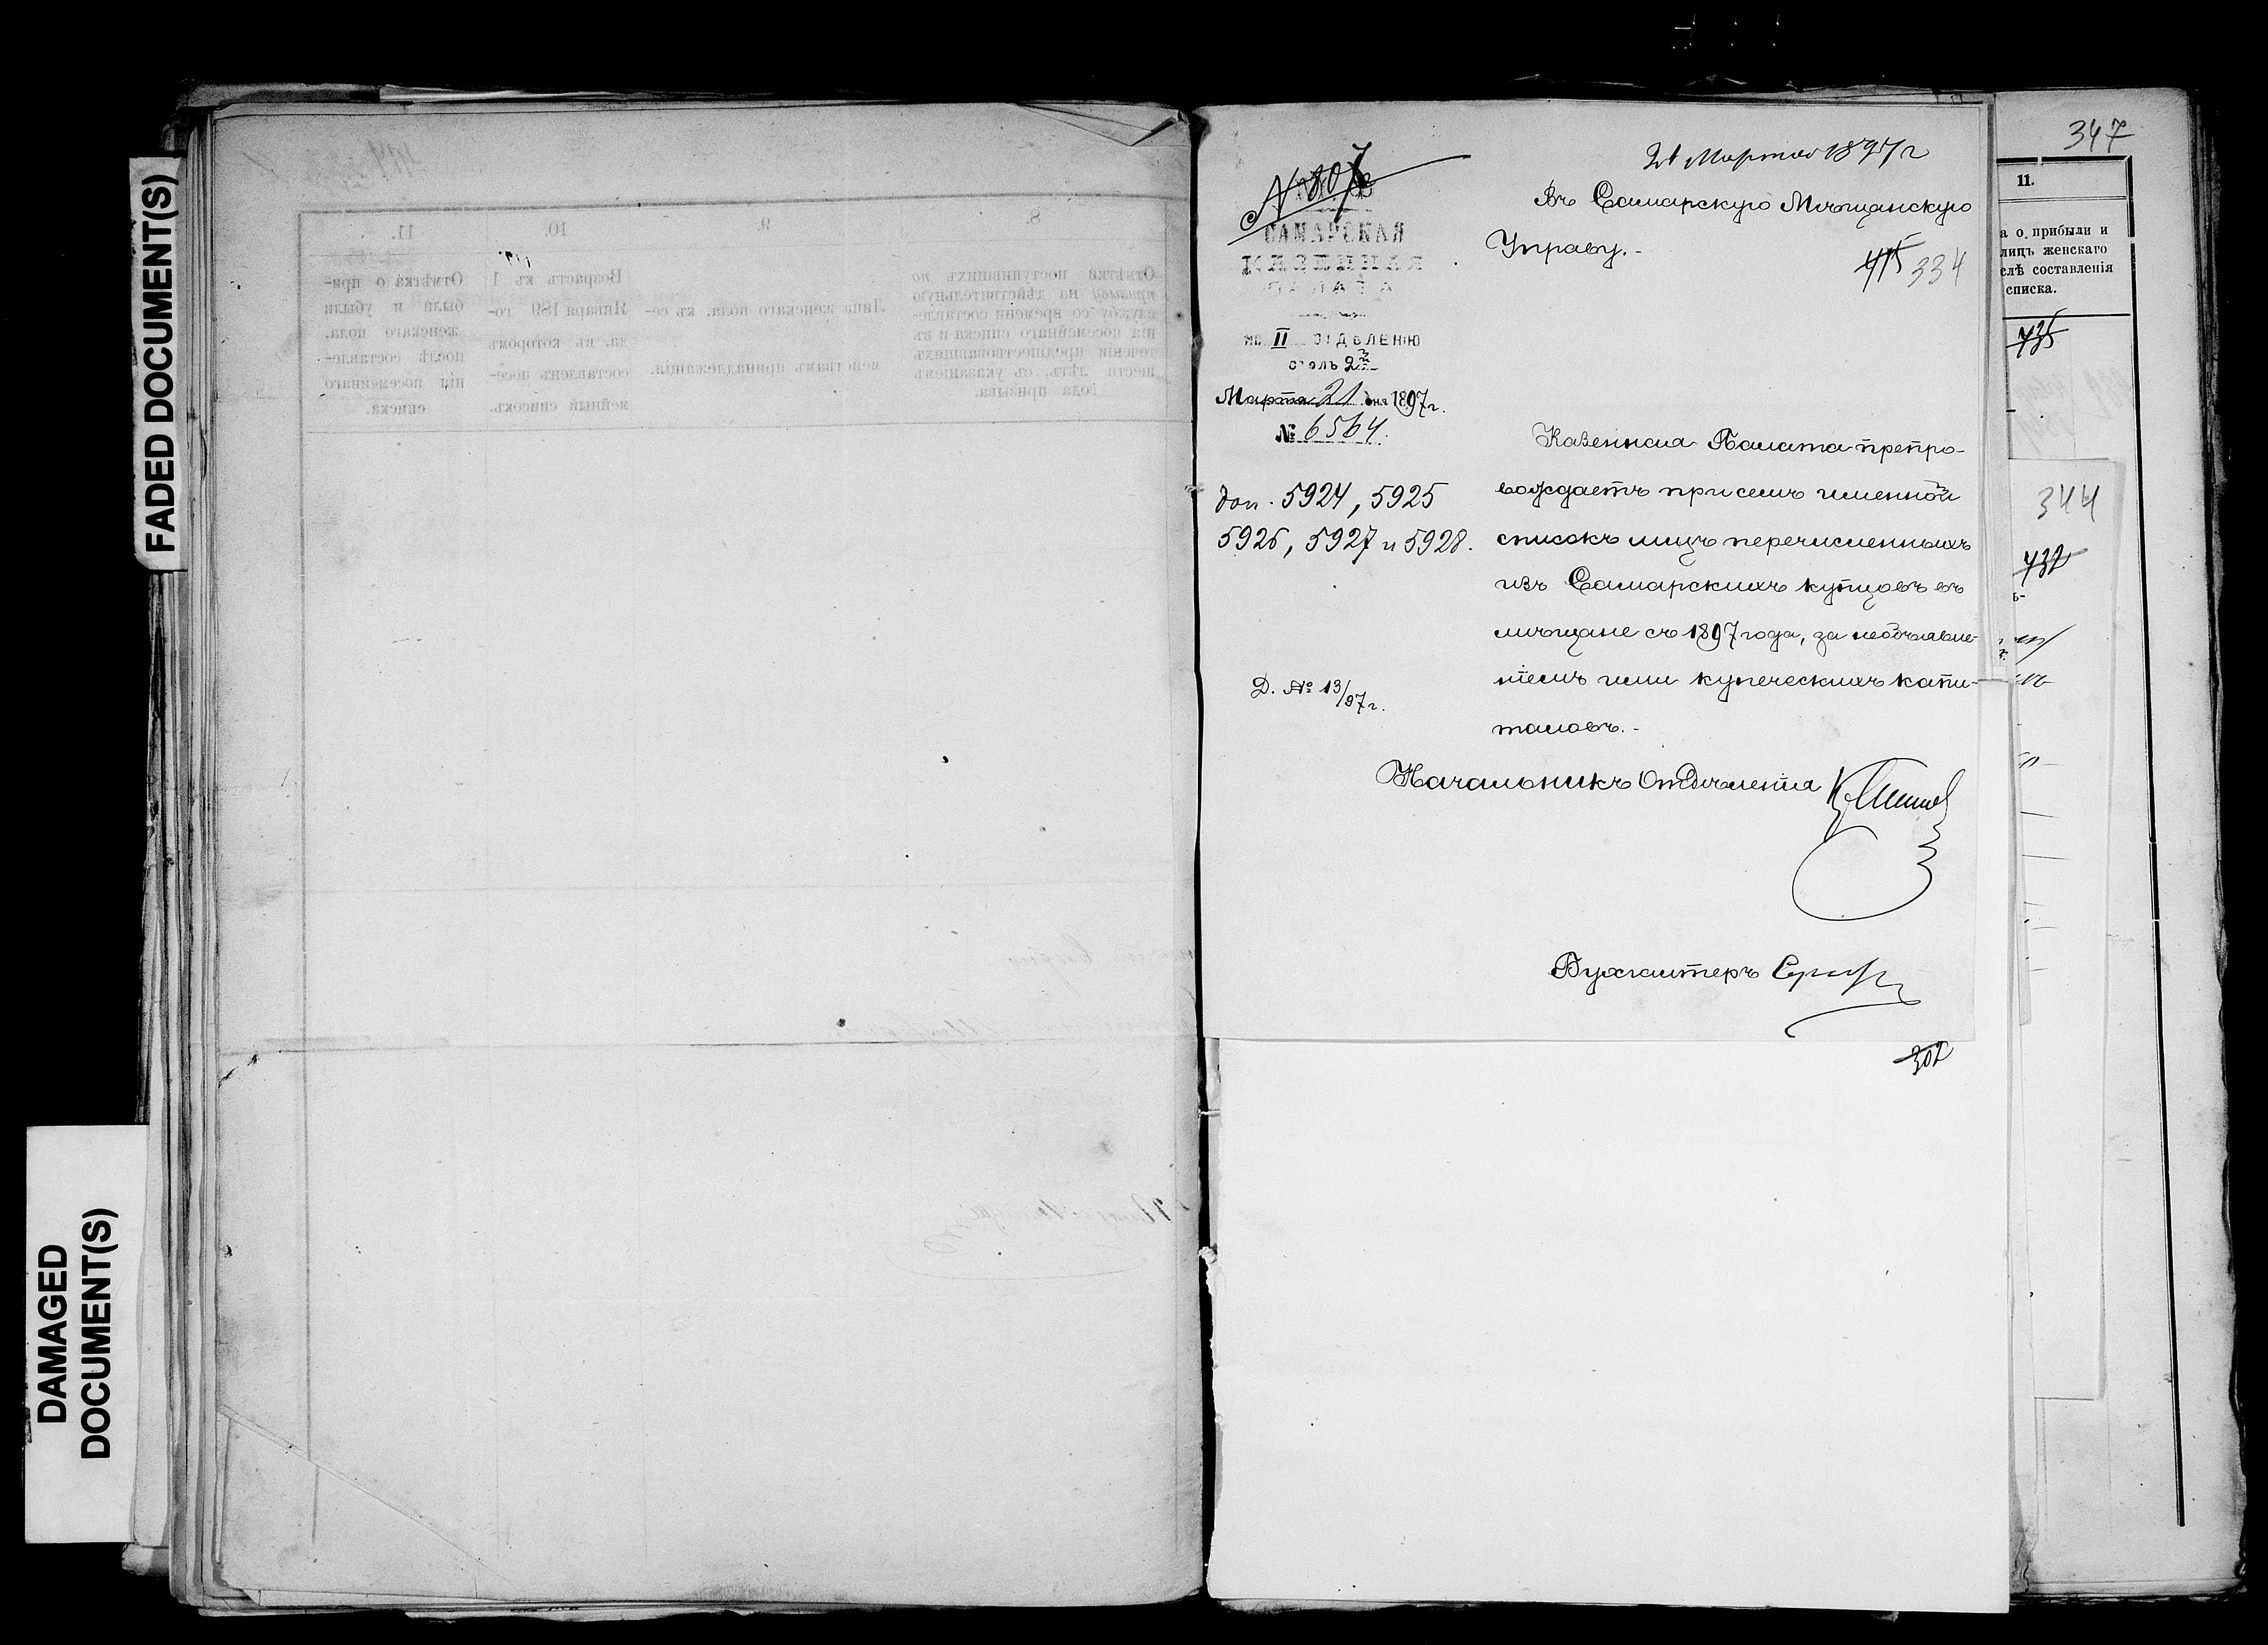 FADED DOCUMENT(S)
DAMAGED
DOCUMENT(S)
11.
10.
9.
8.
Отмѣтка о при-
были и убыли
женскаго пола.
послѣ составле-
нія посемейнаго
списка.
Возрастъ къ 1
Января 189 го-
да, въ которомъ
составленъ посе-
мейный списокъ.
Лица женскаго пола, къ се-
мействамъ принадлежащія.
Отмѣтки поступившихъ по
призыву на дѣйствительную
службу со времени составле-
нія посемейнаго списка и въ
теченіи предшествовавшихъ
шести лѣтъ, съ указаніемъ
года призыва.
№ 807
САМАРСКАЯ
КАЗЕННАЯ
ПАЛАТА
по II ОТДѢЛЕНІЮ
столъ 2
Марта 21 дня 1897 г.
№ 6564.
доп. 5924, 5925
5926, 5927 и 5928.
Д. № 13/97 г.
21 Марта 1897 г
Въ Самарскую Мѣщанскую
Управу.-
415 334
Казенная Палата препро-
вождаетъ при семъ именной
списокъ лицъ перечисленныхъ
изъ Самарскихъ купцовъ въ
мѣщане съ 1897 года, за необъявле-
ніемъ ими купеческихъ капи-
таловъ.-
Начальникъ Отдѣленія
Бухгалтеръ
302
347
11.
а о прибыли и
лицъ женскаго
слѣ составленія
списка.
435
344
432